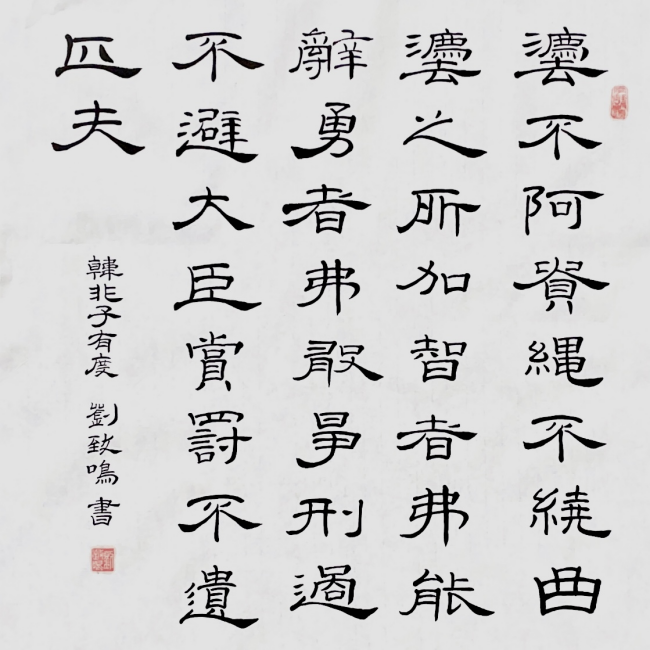 灋不阿貴繩不繞曲
灋之所加智者弗能
辭勇者弗敢爭刑過
不避大臣賞罰不遺
匹夫
韓非子有度 劉致鳴書